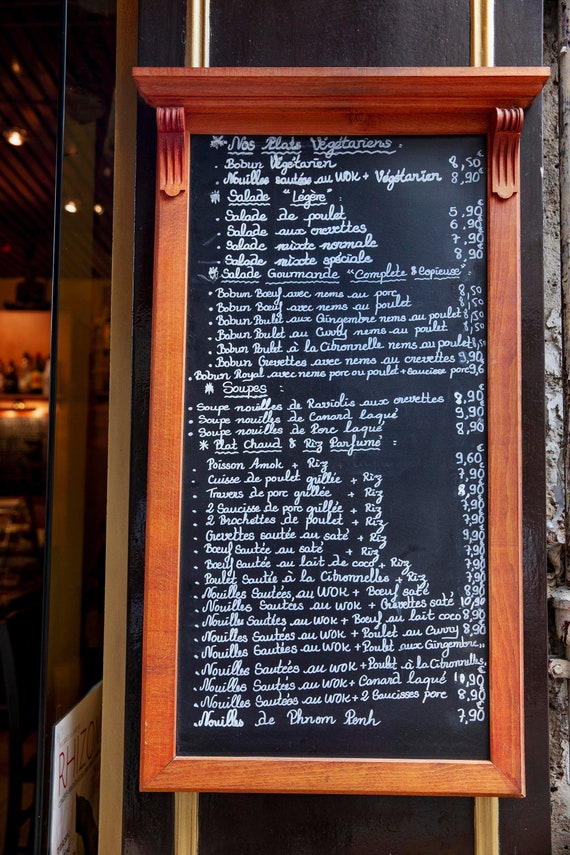 * Nos Plats Végétariens :
. Bobun Végétarien 8,50
. Nouilles sautées au WOK + Végétarien 8,90
* Salade "Légère" : €
. Salade de poulet 5,90
. Salade aux crevettes 6,90
. Salade mixte normale 7,90
. Salade mixte spéciale 8,90
* Salade Gourmande "Complète & Copieuse" €
. Bobun Bœuf avec nems au porc 8,50
. Bobun Bœuf avec nems au poulet 8,50
. Bobun Poulet aux Gingembre nems au poulet 8,50
. Bobun Poulet au Curry nems au poulet 8,50
. Bobun Poulet à la Citronnelle nems au poulet 8,50
. Bobun Crevettes avec nems au crevettes 9,90
. Bobun Royal avec nems porc ou poulet + Saucisse porc 9,6
* Soupes : €
. Soupe nouilles de Raviolis aux crevettes 8,90
. Soupe nouilles de Canard laqué 9,90
. Soupe nouilles de Porc laqué 8,90
* Plat Chaud & Riz Parfumé : €
. Poisson Amok + Riz 9,60
. Cuisse de poulet grillée + Riz 7,90
. Travers de porc grillée + Riz 8,90
. 2 Saucisse de porc grillée + Riz 7,90
. 2 Brochettes de poulet + Riz 7,90
. Crevettes sautée au saté + Riz 9,90
. Bœuf Sautée au saté + Riz 7,90
. Bœuf Sautée au lait de coco + Riz 7,90
. Poulet Sautée à la Citronnelles + Riz 7,90
. Nouilles Sautées au WOK + Bœuf saté 8,90
. Nouilles Sautées au WOK + Crevettes saté 10,90
. Nouilles Sautées au WOK + Bœuf au lait coco 8,90
. Nouilles Sautées au WOK + Poulet au Curry 8,90
. Nouilles Sautées au WOK + Poulet aux Gingembre
. Nouilles Sautées au WOK + Poulet à la Citronnelles
. Nouilles Sautées au WOK + Canard laqué 10,90
. Nouilles Sautées au WOK + 2 Saucisses porc 8,90
. Nouilles de Phnom Penh 7,90
RHIZO